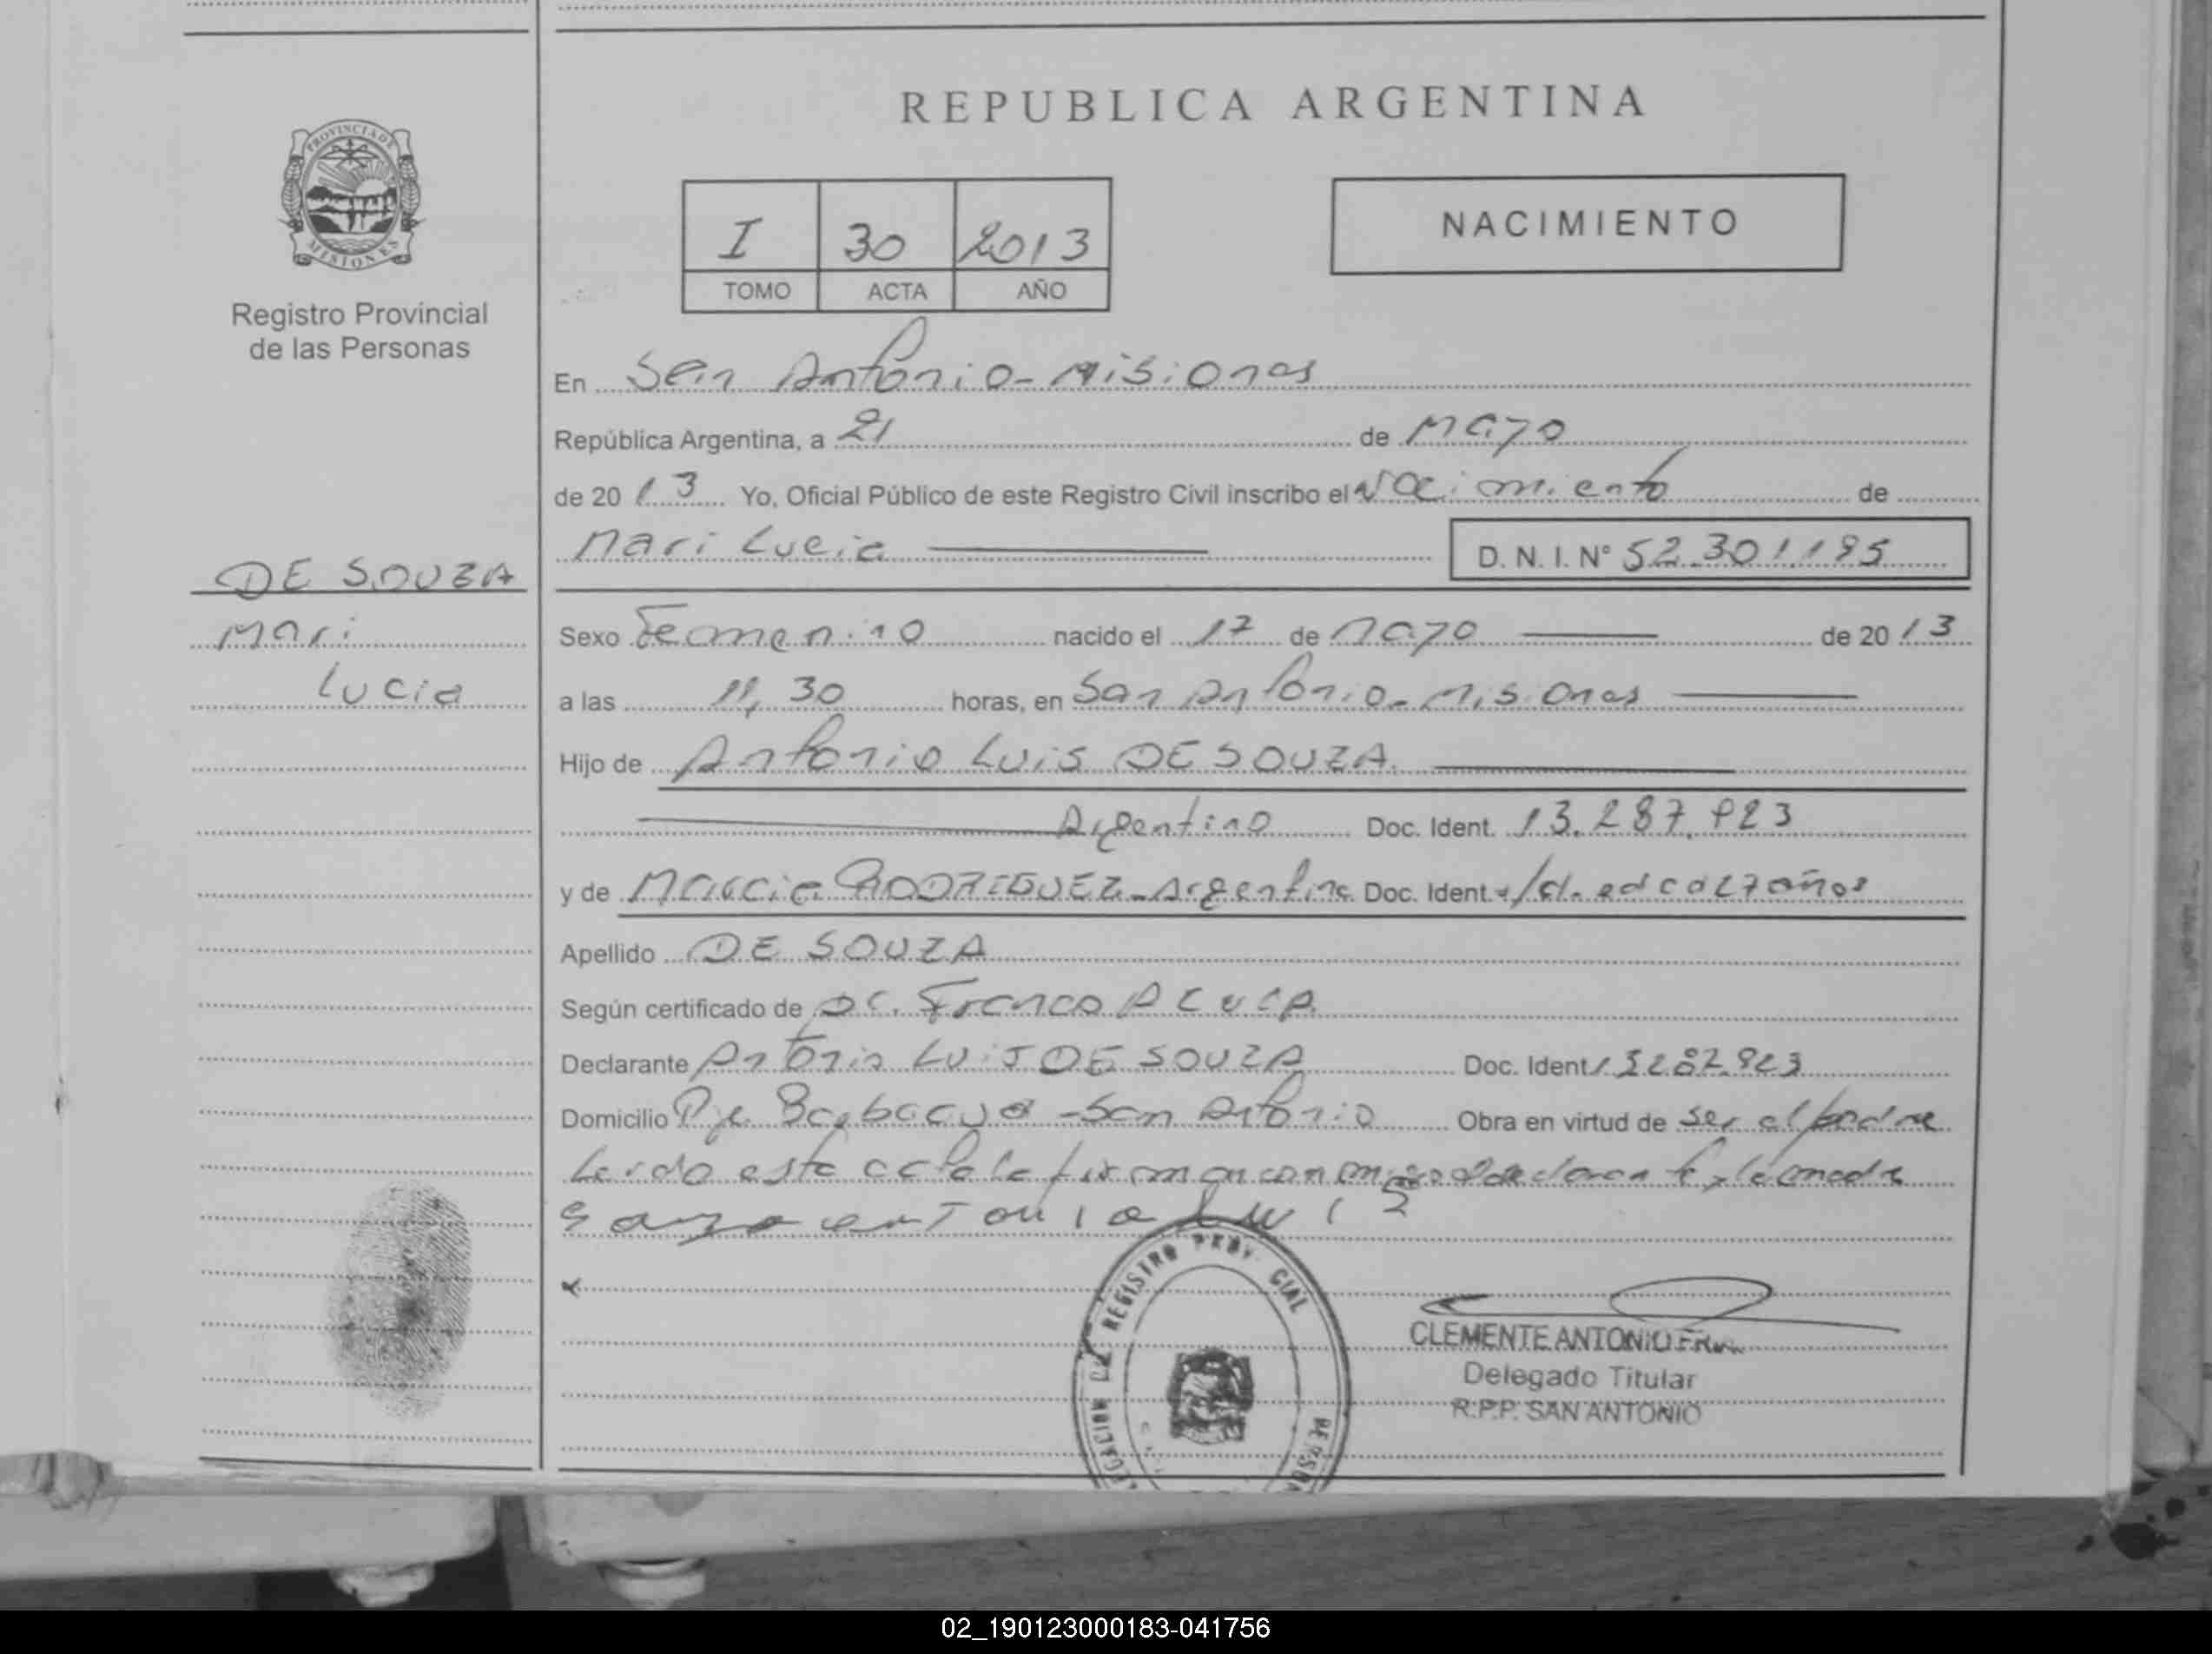 REPUBLICA ARGENTINA
PROVINCIA DE
MISIONES
Registro Provincial
de las Personas
I 30 2013
TOMO ACTA AÑO
NACIMIENTO
En San Antonio - Misiones
República Argentina, a 21 de Mayo
de 2013 Yo, Oficial Público de este Registro Civil inscribo el Nacimiento de
Mari Lucia
D. N. I. N° 52.301.195
DE SOUZA
Mari
Lucia
Sexo Femenino nacido el 17 de Mayo de 2013
a las 11,30 horas, en San Antonio - Misiones
Hijo de Antonio Luis DE SOUZA
Argentino Doc. Ident. 13.287.923
y de RODRIGUEZ - Argentina Doc. Ident.
Apellido DE SOUZA
Según certificado de Dr. Franco
Declarante Antonio Luis DE SOUZA Doc. Ident 13287.923
Domicilio San Antonio Obra en virtud de ser el padre
Leida esta acta la firman con migo declarante y la madre
REGISTRO
CLEMENTE ANTONIO
Delegado Titular
R.P.P. SAN ANTONIO
02_190123000183-041756